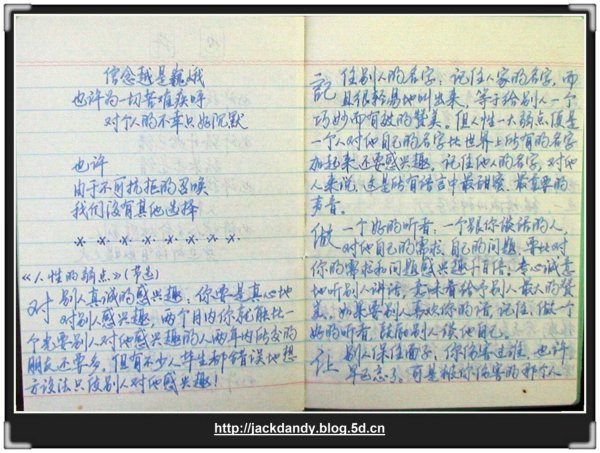 信念越是巍峨
也许为一切苦难疾呼
对个人的不幸只好沉默
也许
由于不可抗拒的召唤
我们没有其他选择
*. *. *. *. *. *. *. *.
《人性的弱点》(节选)
对别人真诚的感兴趣，你要是真心地
对别人感兴趣，两个月内你就能比一
个光要别人对他感兴趣的人两年内所交的
朋友还要多，但有不少人毕生都错误地想
方设法只使别人对他感兴趣！
記住别人的名字：记住人家的名字，而
且很轻易地叫出来，等于给别人一个
巧妙而有效的赞美。但人性一大弱点便是
一个人对他自己的名字比世界上所有的名字
加起来还要感兴趣，记住他人的名字，对他
人来说，这是所有语言中最甜蜜、最重要的
声音。
做一个好的听者：一个跟你谈话的人，
对他自己的需求，自己的问题，要比对
你的需求和问题感兴趣千百倍，专心诚意
地听别人讲话，意味着给予别人最大的赞
美，如果要别人喜欢你的话，记住，做一个
好的听者，鼓励别人谈他自己。
让别人保住面子，你伤害过谁，也许
早已忘了。可是被你伤害的那个人
http://jackdandy.blog.5d.cn